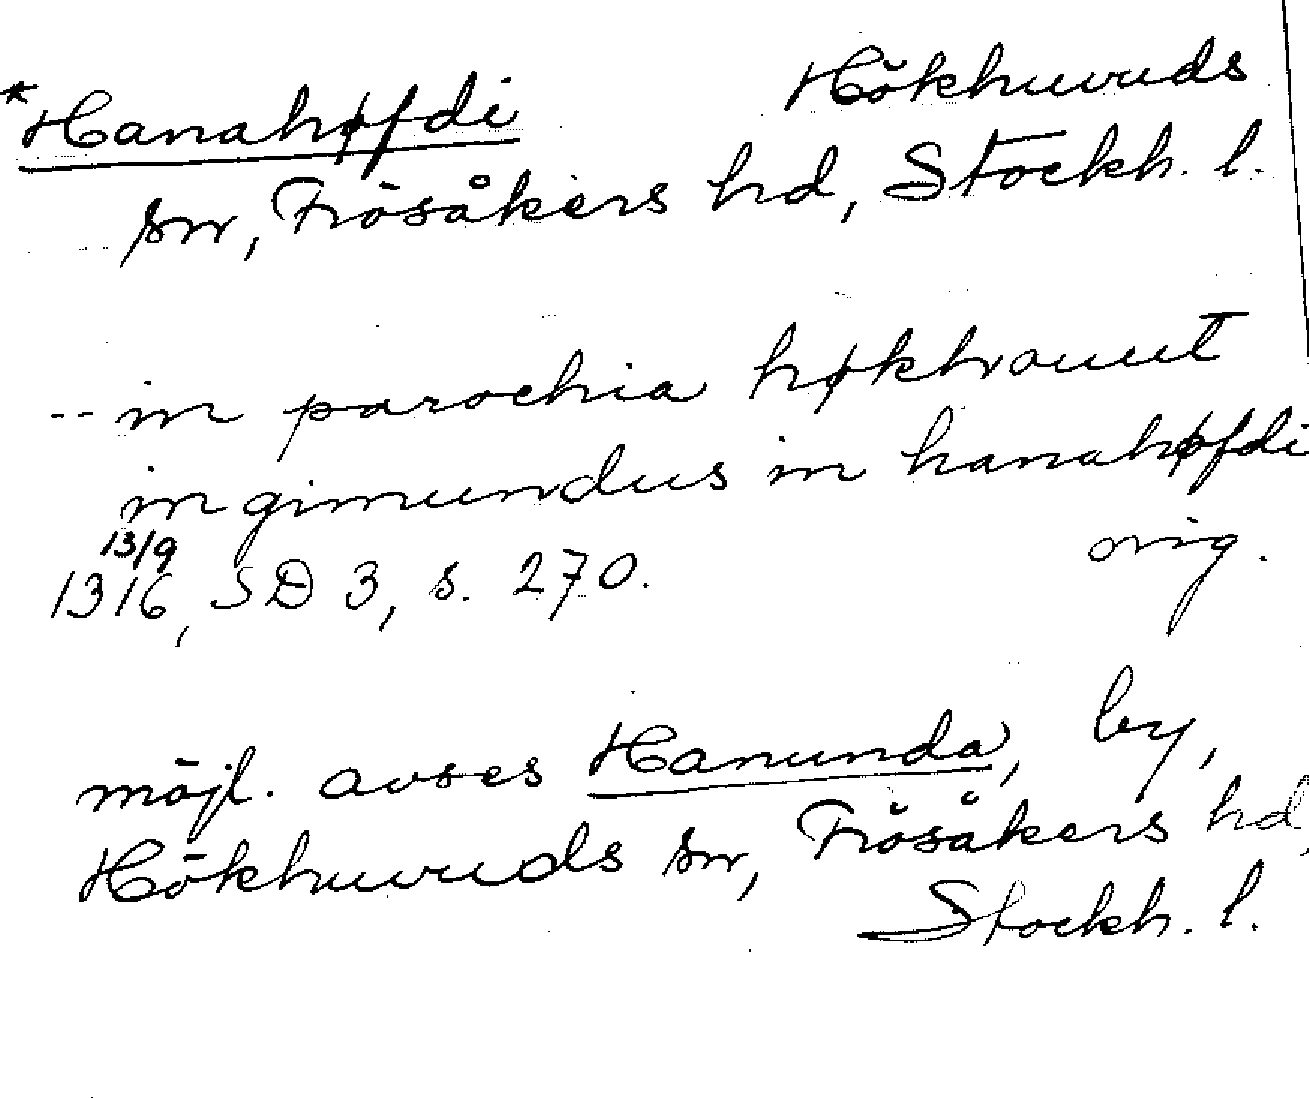 *Hanahøfdi Hökhuvuds
sn, Frösåkers hd, Stockh. l.
-- in parochia høkhouut
ingimundus in hanahøfdi
13/9
1316, SD 3, s. 270. orig.
möjl. avses Hanunda, by,
Hökhuvuds sn, Frösåkers hd,
Stockh. l.